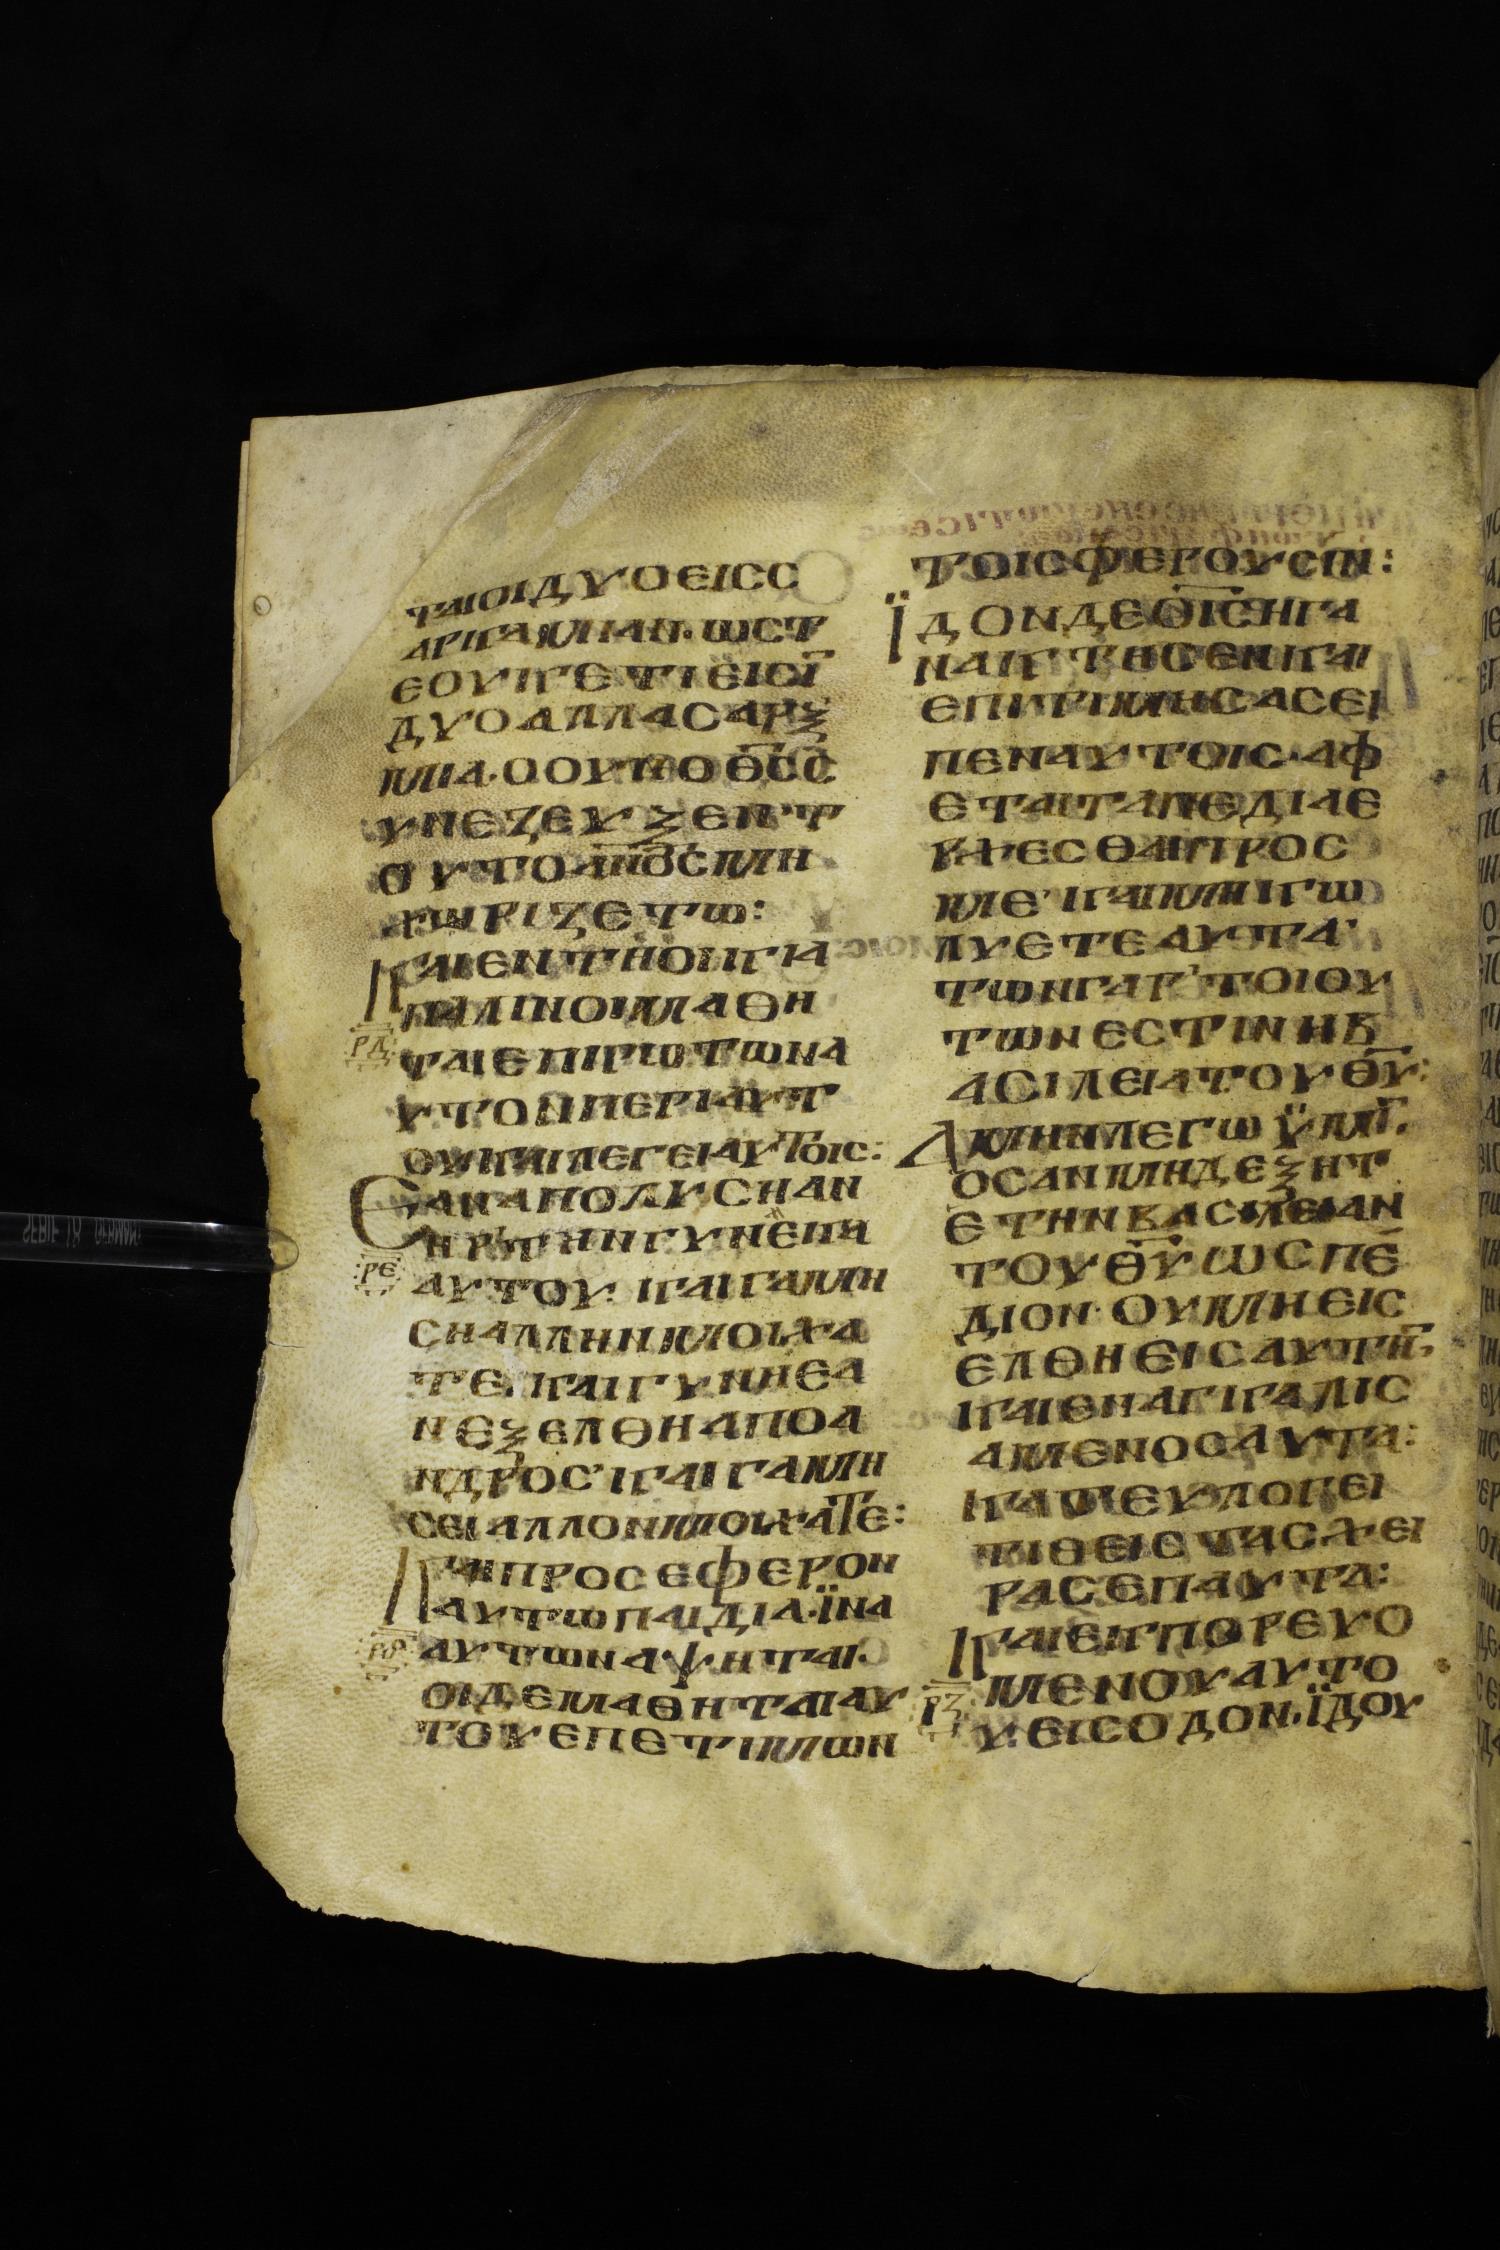 ΤΑΙΟΙΔΥΟΕΙСС
ΑΡΚΑΜΙΑΝ·ΩСΤ
ΕΟΥΚΕΤΙΕΙСΙ̅
ΔΥΟΑΛΛΑСΑΡΞ
ΜΙΑ·ΟΟΥΝΟΘ̅С̅С
ΥΝΕΖΕΥΞΕΝ·Τ
ΟΥΤΟΑΝ̅Ο̅С̅ΜΗ
ΧΩΡΙΖΕΤΩ:
ΚΑΙΕΝΤΗΟΙΚΙΑ
ΠΑΛΙΝΟΙΜΑΘΗ
Ρ̅Δ̅
ΤΑΙΕΠΙΡΩΤΩΝΑ
ΥΤΟΝΠΕΡΙΑΥΤ
ΟΥΚΑΙΛΕΓΕΙΑΥΤΟΙС:
ΕΑΝΑΠΟΛΥСΗΑΝ
ΗΡΤΗΝΓΥΝΕΠΑ
Ρ̅Ε̅
ΑΥΤΟΥ·ΚΑΙΓΑΜΗ
СΗΑΛΛΗΝΜΟΙΧΑ
ΤΕ·ΚΑΙΓΥΝΗΕΑ
ΝΕΞΕΛΘΗΑΠΟΑ
ΝΔΡΟС'ΚΑΙΓΑΜΗ
СΕΙΑΛΛΟΝΜΟΙΧΑΤΕ:
ΚΑΙΠΡΟСΕΦΕΡΟΝ
ΑΥΤΩΠΑΙΔΙΑ·ΪΝΑ
ΑΥΤΩΝΑΨΗΤΑΙ·
ΟΙΔΕΜΑΘΗΤΑΙΑΥ
ΤΟΥΕΠΕΤΙΜΩΝ
ΤΟΙСΦΕΡΟΥСΙΝ:
ΪΔΟΝΔΕΟΙ̅С̅ΗΓΑ
ΝΑΚΤΗСΕΝΚΑΙ
ΕΠΙΤΙΜΗСΑСΕΙ
ΠΕΝΑΥΤΟΙС·ΑΦ
ΕΤΑΙΤΑΠΕΔΙΑΕ
ΡΧΕСΘΑΙΠΡΟС
ΜΕ'ΚΑΙΜΗΚΩ
ΛΥΕΤΕΑΥΤΑ'
ΤΩΝΓΑΡ'ΤΟΙΟΥ
ΤΩΝΕСΤΙΝΗΒ
ΑСΙΛΕΙΑΤΟΥΘ̅Υ̅:
ΑΜΗΝΛΕΓΩΫΜΙ̅·
ΟСΑΝΜΗΔΕΞΗΤ
ΕΤΗΝΒΑСΙΛΕΙΑΝ
ΤΟΥΘ̅Υ̅ΩСΠΕ
ΔΙΟΝ·ΟΥΜΗΕΙС
ΕΛΘΗΕΙСΑΥΤΗ̅·
ΚΑΙΕΝΑΓΚΑΛΙС
ΑΜΕΝΟСΑΥΤΑ:
ΚΑΤΕΥΛΟΓΕΙ
ΤΙΘΕΙСΤΑСΧΕΙ
ΡΑСΕΠΑΥΤΑ:
ΚΑΙΕΚΠΟΡΕΥΟ
ΜΕΝΟΥΑΥΤΟ
Ρ̅Ζ̅
ΥΕΙСΟΔΟΝ·ΪΔΟΥ